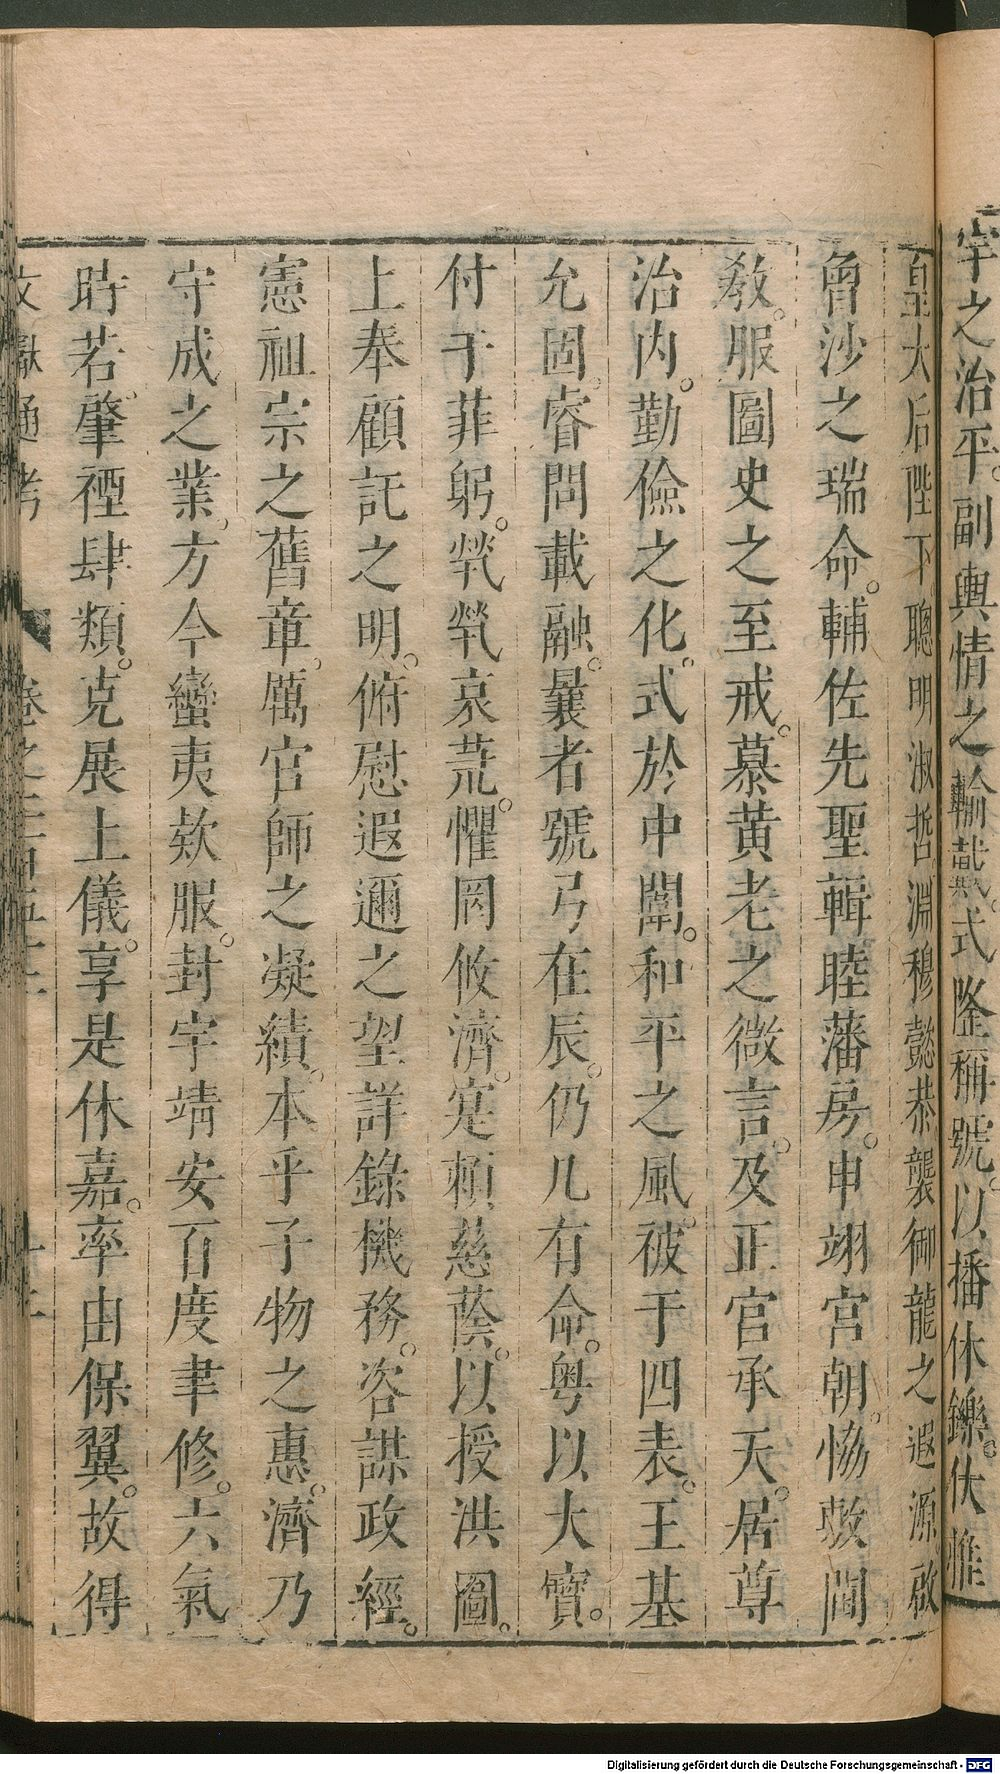 宇之治平。副輿情之輸戴。式隆稱號。以播休鑠。伏惟
皇太后陛下聰明淑哲。淵穆懿恭襲御龍之遐源。啟
會沙之瑞命。輔佐先聖輯睦藩房。申翊宮朝。恊敷閫
教。服圖史之至戒。慕黃老之微言。及正官承天。居尊
治內。勤儉之化。式於中闈。和平之風。被于四表。王基
允固。睿問載融。曩者號弓在辰。仍几有命。粤以大寶。
付于菲躬。煢煢哀荒。懼罔攸濟。寔頼慈蔭。以授洪圖。
上奉顧託之明。俯慰遐邇之望詳錄機務。咨謀政經。
憲祖宗之舊章。厲官師之凝績。本乎子物之惠。濟乃
守成之業。方今蠻夷欵服。封宇靖安百度聿修。六氣
時若。肇禋肆類。克展上儀。享是休嘉。率由保翼。故得
文獻通考 卷之二百五十二
Digitalisierung gefördert durch die Deutsche Forschungsgemeinschaft - DFG